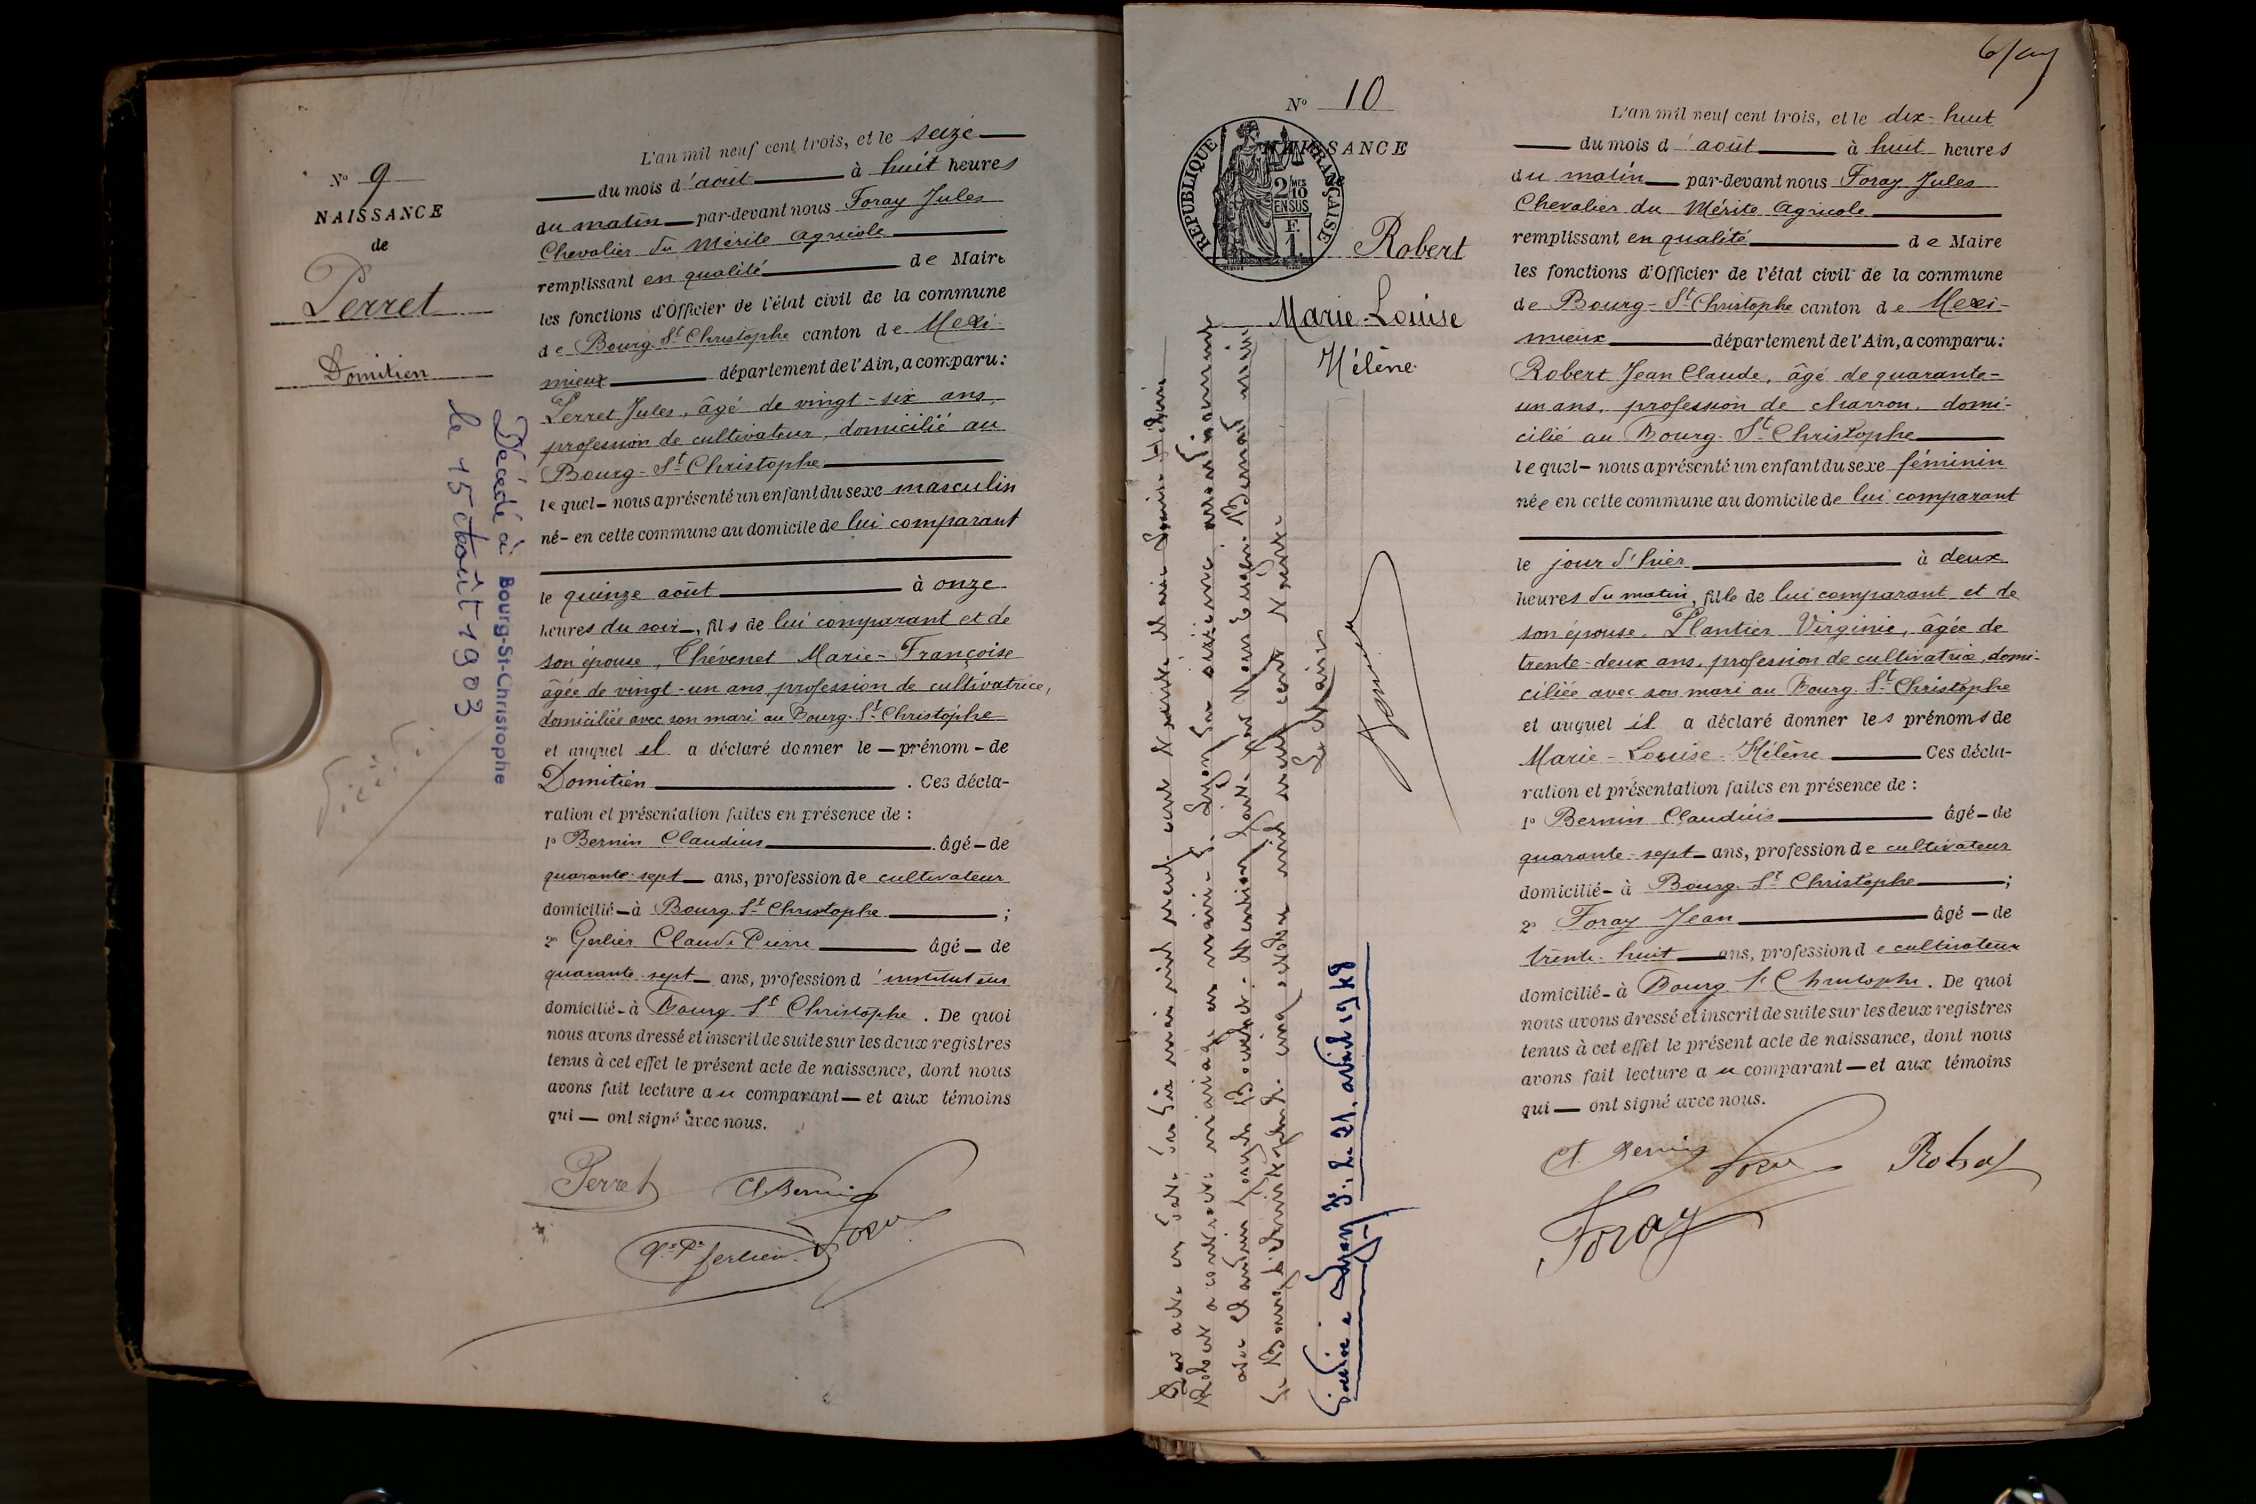 N° 9
NAISSANCE
de
Perret
Domitien
Décédé à Bourg-St-Christophe
le 15 août 1903
L'an mil neuf cent trois, et le seize
du mois d'août à huit heures
du matin par-devant nous Foray Jules
Chevalier du Mérite Agricole
remplissant en qualité de Maire
les fonctions d'Officier de l'état civil de la commune
de Bourg-St-Christophe canton de Mexi-
mieux département de l'Ain, a comparu:
Perret Jules, âgé de vingt-six ans,
profession de cultivateur, domicilié au
Bourg-St-Christophe
lequel nous a présenté un enfant du sexe masculin
né en cette commune au domicile de lui comparant
le quinze août à onze
heures du soir, fils de lui comparant et de
son épouse, Thévenet Marie-Françoise
âgée de vingt-un ans, profession de cultivatrice,
domiciliée avec son mari au Bourg-St-Christophe
et auquel il a déclaré donner le prénom de
Domitien. Ces décla-
ration et présentation faites en présence de :
1° Bernin Claudius âgé de
quarante-sept ans, profession de cultivateur
domicilié à Bourg-St-Christophe ;
2° Gerlier Claude Pierre âgé de
quarante-sept ans, profession d'instituteur
domicilié à Bourg-St-Christophe. De quoi
nous avons dressé et inscrit de suite sur les deux registres
tenus à cet effet le présent acte de naissance, dont nous
avons fait lecture au comparant et aux témoins
qui ont signé avec nous.
Perret Cl. Bernin
Foray
Cl. Pre Gerlier
6/
N° 10
NAISSANCE
de
RÉPUBLIQUE FRANÇAISE
2/10 MES
EN SUS
F.
1
Robert
Marie-Louise
Hélène
Par acte en date du six mai mil neuf cent trente Marie Louise Hélène
Robert a contracté mariage en mairie à Lyon du sixième arrondissement
avec
Le Bourg St Christophe le cinq octobre mil neuf cent trente
Le Maire
Décédée à Lyon 3e, le 21 avril 1948
L'an mil neuf cent trois, et le dix-huit
du mois d'août à huit heures
du matin par-devant nous Foray Jules
Chevalier du Mérite Agricole
remplissant en qualité de Maire
les fonctions d'Officier de l'état civil de la commune
de Bourg-St-Christophe canton de Mexi-
mieux département de l'Ain, a comparu:
Robert Jean Claude, âgé de quarante-
un ans, profession de charron, domi-
cilié au Bourg-St-Christophe
lequel nous a présenté un enfant du sexe féminin
née en cette commune au domicile de lui comparant
le jour d'hier à deux
heures du matin, fille de lui comparant et de
son épouse, Plantier Virginie, âgée de
trente-deux ans, profession de cultivatrice, domi-
ciliée avec son mari au Bourg-St-Christophe
et auquel il a déclaré donner les prénoms de
Marie-Louise-Hélène Ces décla-
ration et présentation faites en présence de :
1° Bernin Claudius âgé de
quarante-sept ans, profession de cultivateur
domicilié à Bourg-St-Christophe ;
2° Foray Jean âgé de
trente-huit ans, profession de cultivateur
domicilié à Bourg St Christophe. De quoi
nous avons dressé et inscrit de suite sur les deux registres
tenus à cet effet le présent acte de naissance, dont nous
avons fait lecture au comparant et aux témoins
qui ont signé avec nous.
Cl. Bernin Foray Robert
Foray